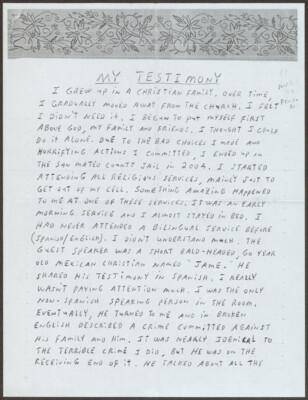 MY TESTIMONY
I GREW UP IN A CHRISTIAN FAMILY. OVER TIME,
I GRADUALLY MOVED AWAY FROM THE CHURCH. I FELT
I DIDN'T NEED IT. I BEGAN TO PUT MYSELF FIRST
ABOVE GOD, MY FAMILY AND FRIENDS. I THOUGHT I COULD
DO IT ALONE. DUE TO THE BAD CHOICES I MADE AND
HORRIFYING ACTIONS I COMMITTED, I ENDED UP ON
THE SAN MATEO COUNTY JAIL IN 2004. I STARTED
ATTENDING ALL RELIGIOUS SERVICES, MAINLY JUST TO
GET OUT OF MY CELL. SOMETHING AMAZING HAPPENED
TO ME AT ONE OF THESE SERVICES. IT WAS AN EARLY
MORNING SERVICE AND I ALMOST STAYED IN BED. I
HAD NEVER ATTENDED A BILINGUAL SERVICE BEFORE
(SPANISH/ENGLISH). I DIDN'T UNDERSTAND MUCH. THE
GUEST SPEAKER WAS A SHORT BALD-HEADED, 60 YEAR
OLD MEXICAN CHRISTIAN NAMED "JAME." HE
SHARED HIS TESTIMONY IN SPANISH. I REALLY
WASN'T PAYING ATTENTION MUCH. I WAS THE ONLY
NON-SPANISH SPEAKING PERSON IN THE ROOM.
EVENTUALLY, HE TURNED TO ME AND IN BROKEN
ENGLISH DESCRIBED A CRIME COMMITTED AGAINST
HIS FAMILY AND HIM. IT WAS NEARLY IDENICAL TO
THE TERRIBLE CRIME I DID, BUT HE WAS ON THE
RECEIVING END OF IT. HE TALKED ABOUT ALL THE